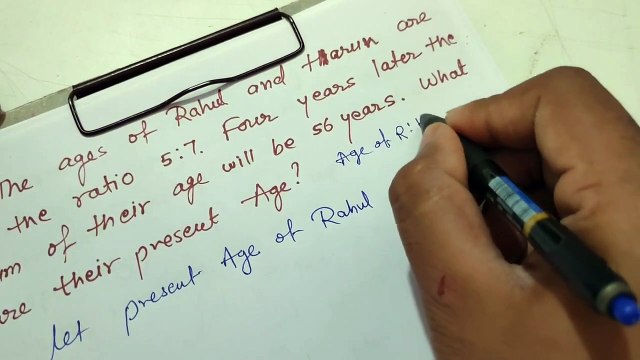 The ages of Rahul and tharun are
the ratio 5:7. Four years later the
m of their age will be 56 years. What
are their present Age?
Age of R:
let present Age of Rahul